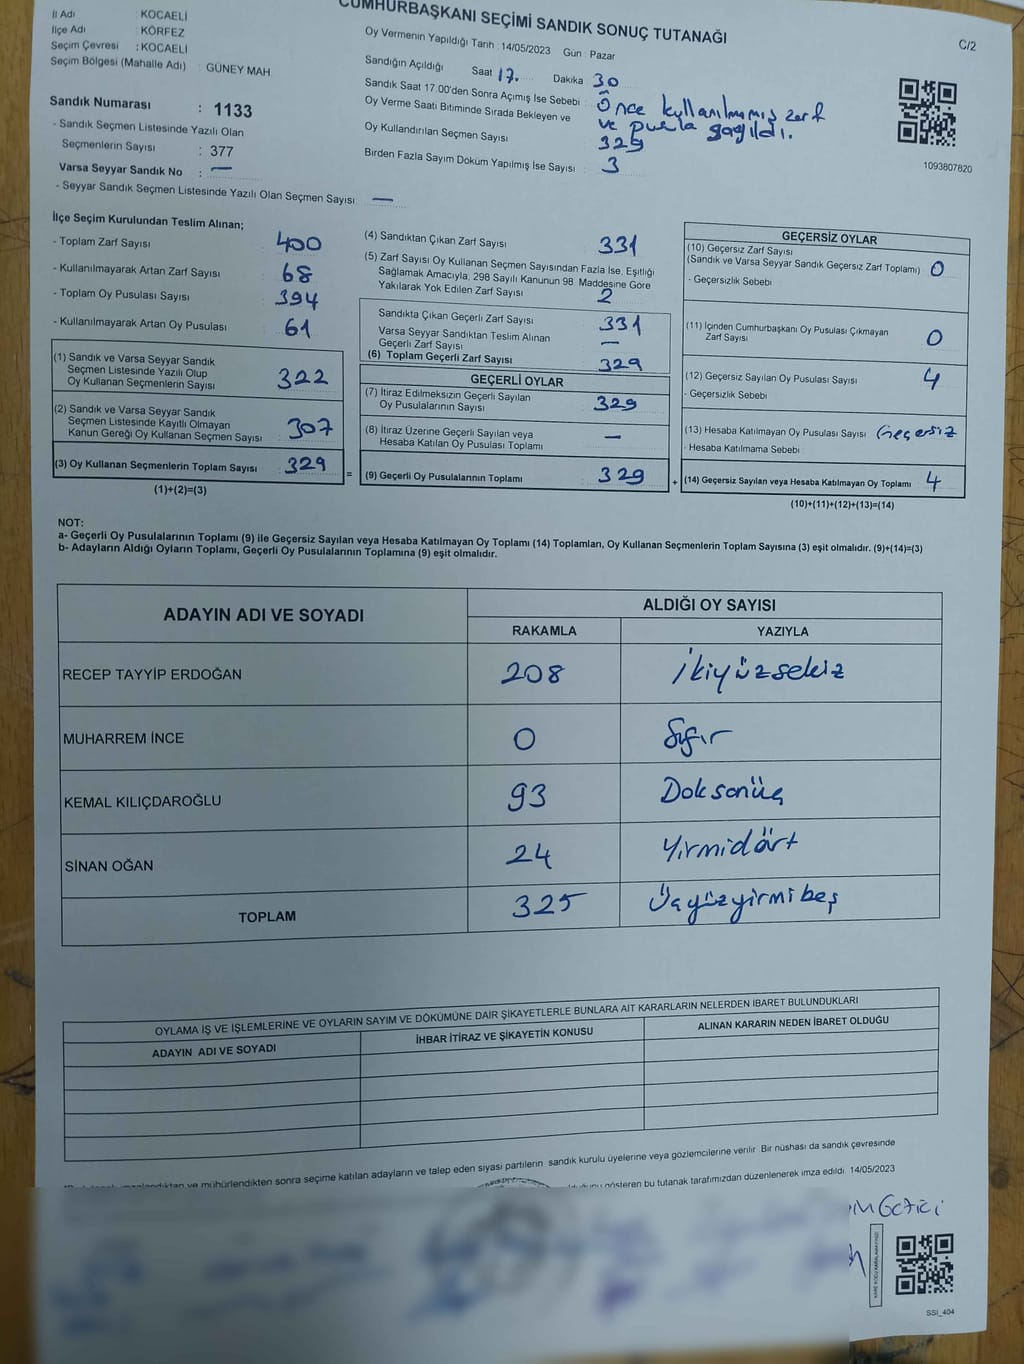 CUMHURBAŞKANI SEÇİMİ SANDIK SONUÇ TUTANAĞI
C/2
İl Adı : KOCAELİ
İlçe Adı : KÖRFEZ
Seçim Çevresi : KOCAELİ
Seçim Bölgesi (Mahalle Adı) : GÜNEY MAH
Sandık Numarası : 1133
- Sandık Seçmen Listesinde Yazılı Olan
Seçmenlerin Sayısı : 377
Varsa Seyyar Sandık No : —
- Seyyar Sandık Seçmen Listesinde Yazılı Olan Seçmen Sayısı: —
Oy Vermenin Yapıldığı Tarih : 14/05/2023 Gün : Pazar
Sandığın Açıldığı Saat 17. Dakika 30
Sandık Saat 17.00'den Sonra Açımış İse Sebebi : Önce kullanılmamış zarf
ve pusla sayıldı.
Oy Verme Saati Bitiminde Sırada Bekleyen ve
Oy Kullandırılan Seçmen Sayısı 329
Birden Fazla Sayım Döküm Yapılmış İse Sayısı : 3
1093807820
İlçe Seçim Kurulundan Teslim Alınan;
- Toplam Zarf Sayısı 400
- Kullanılmayarak Artan Zarf Sayısı 68
- Toplam Oy Pusulası Sayısı 394
- Kullanılmayarak Artan Oy Pusulası 61
(1) Sandık ve Varsa Seyyar Sandık
Seçmen Listesinde Yazılı Olup
Oy Kullanan Seçmenlerin Sayısı 322
(2) Sandık ve Varsa Seyyar Sandık
Seçmen Listesinde Kayıtlı Olmayan
Kanun Gereği Oy Kullanan Seçmen Sayısı 307
(3) Oy Kullanan Seçmenlerin Toplam Sayısı 329 =
(1)+(2)=(3)
(4) Sandıktan Çıkan Zarf Sayısı 331
(5) Zarf Sayısı Oy Kullanan Seçmen Sayısından Fazla İse, Eşitliği
Sağlamak Amacıyla, 298 Sayılı Kanunun 98. Maddesine Göre
Yakılarak Yok Edilen Zarf Sayısı 2
Sandıkta Çıkan Geçerli Zarf Sayısı 331
Varsa Seyyar Sandıktan Teslim Alınan
Geçerli Zarf Sayısı —
(6) Toplam Geçerli Zarf Sayısı 329
GEÇERLİ OYLAR
(7) İtiraz Edilmeksizin Geçerli Sayılan
Oy Pusulalarının Sayısı 329
(8) İtiraz Üzerine Geçerli Sayılan veya
Hesaba Katılan Oy Pusulası Toplamı —
(9) Geçerli Oy Pusulalarının Toplamı 329 +
GEÇERSİZ OYLAR
(10) Geçersiz Zarf Sayısı
(Sandık ve Varsa Seyyar Sandık Geçersiz Zarf Toplamı) 0
- Geçersizlik Sebebi
(11) İçinden Cumhurbaşkanı Oy Pusulası Çıkmayan
Zarf Sayısı 0
(12) Geçersiz Sayılan Oy Pusulası Sayısı 4
- Geçersizlik Sebebi
(13) Hesaba Katılmayan Oy Pusulası Sayısı Geçersiz
- Hesaba Katılmama Sebebi :
(14) Geçersiz Sayılan veya Hesaba Katılmayan Oy Toplamı 4
(10)+(11)+(12)+(13)=(14)
NOT:
a- Geçerli Oy Pusulalarının Toplamı (9) ile Geçersiz Sayılan veya Hesaba Katılmayan Oy Toplamı (14) Toplamları, Oy Kullanan Seçmenlerin Toplam Sayısına (3) eşit olmalıdır. (9)+(14)=(3)
b- Adayların Aldığı Oyların Toplamı, Geçerli Oy Pusulalarının Toplamına (9) eşit olmalıdır.
ADAYIN ADI VE SOYADI ALDIĞI OY SAYISI
RAKAMLA YAZIYLA
RECEP TAYYİP ERDOĞAN 208 İkiyüzsekiz
MUHARREM İNCE 0 Sıfır
KEMAL KILIÇDAROĞLU 93 Doksonüç
SİNAN OĞAN 24 Yirmidört
TOPLAM 325 Üçyüzyirmibeş
OYLAMA İŞ VE İŞLEMLERİNE VE OYLARIN SAYIM VE DÖKÜMÜNE DAİR ŞİKAYETLERLE BUNLARA AİT KARARLARIN NELERDEN İBARET BULUNDUKLARI
ADAYIN ADI VE SOYADI İHBAR İTİRAZ VE ŞİKAYETİN KONUSU ALINAN KARARIN NEDEN İBARET OLDUĞU
ve mühürlendikten sonra seçime katılan adayların ve talep eden siyasi partilerin sandık kurulu üyelerine veya gözlemcilerine verilir. Bir nüshası da sandık çevresinde
gösteren bu tutanak tarafımızdan düzenlenerek imza edildi. 14/05/2023
SSI_404